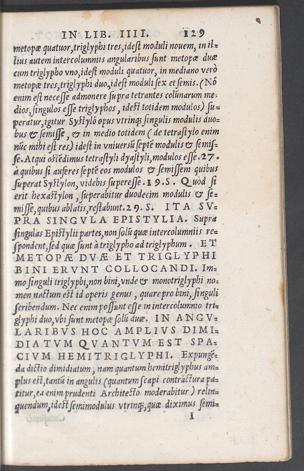 IN LIB. IIII. 129
metopæ quatuor, triglyphi tres, idest moduli nouem, in il-
lius autem intercolumniis angularibus sunt metopæ duæ
cum triglypho vno, idest moduli quatuor, in mediano verò
metopæ tres, triglyphi duo, idest moduli sex et semis. (Nõ
enim est necesse admonere supra tetrantes colūnarum me-
dios, singulos esse triglyphos, idest totidem modulos) su-
peratur, igitur Systylõ opus vtrinq; singulis modulis duo-
bus & semisse, & in medio totidem (de tetrastylo enim
nūc mihi est res) idest in vniuersū septē modulis & semis-
se. Atqui ostēdimus tetrastyli dyastyli, modulos esse .27.
à quibus si auferes septē eos modulos & semissem quibus
superat Systylon, videbis superesse .19. S. Quòd si
erit hexastylon, superabitur duodecim modulis & se-
misse, quibus ablatis, restabunt .29. S. ITA SV-
PRA SINGVLA EPISTYLIA. Supra
singulas Epistylii partes, non solū quæ intercolumniis re-
spondent, sed quæ sunt à triglypho ad triglyphum. ET
METOPÆ DVÆ ET TRIGLYPHI
BINI ERVNT COLLOCANDI. Im-
mo singuli triglyphi, non bini, vnde & monotriglyphi no-
men nectum est id operis genus, quare pro bini, singuli
scribendum. Nec enim possunt esse in intercolumnio tri-
glyphi duo, vbi sunt metopæ solū duæ. IN ANGV-
LARIBVS HOC AMPLIVS DIMI-
DIATVM QVANTVM EST SPA-
CIVM HEMITRIGLYPHI. Expungē-
da dictio dimidiatum, nam quantum hemitriglyphus am-
plus est, tantū in angulis (quantum scapi contractura pa-
titur, ea enim prudenti Architecto moderabitur) relin-
quendum, idest semimodulus vtrinq; quæ diximus semi-
I